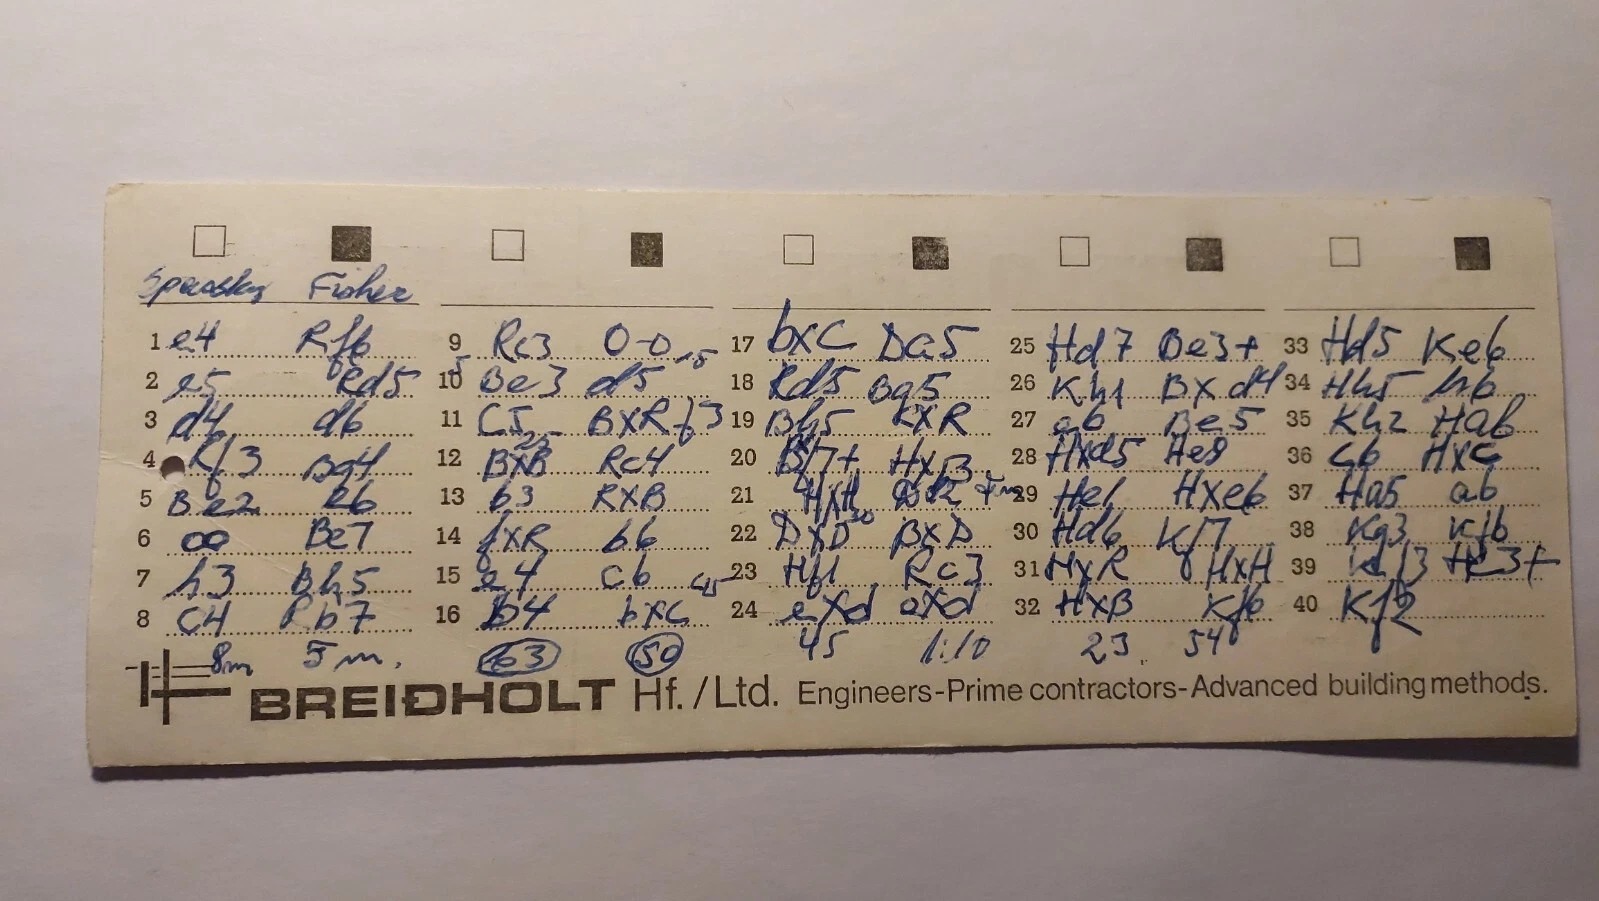 Spassky Fisher
1 e4 Rf6 9 Rc3 0-0 17 bxc Da5 25 Hd7 Be3+ 33 Hd5 Ke6
2 e5 Rd5 10 Be3 d5 18 Rd5 Bg5 26 Kh1 Bxd4 34 Hh5 h6
3 d4 d6 11 C5 BxRf3 19 Bh5 kxR 27 a6 Be5 35 Kh2 Ha6
4 Rf3 Bg4 12 BxB Rc4 20 Bf7+ Hxf3 28 Hxd5 He8 36 c6 Hxc
5 Be2 e6 13 b3 RxB 21 HxH 29 He1 Hxe6 37 Ha5 a6
6 oo Be7 14 fxR b6 22 DxD BxD 30 Hd6 Kf7 38 Kg3 Kf6
7 h3 Bh5 15 e4 c6 23 Hf1 Rc3 31 HxR HxH 39 He3+
8 C4 Rb7 16 B4 bxc 24 exd axd 32 HxB Kf6 40 Kf2
8m 5 m. 63 50 45 1:10 23 54
BREIÐHOLT Hf./Ltd. Engineers-Prime contractors-Advanced building methods.